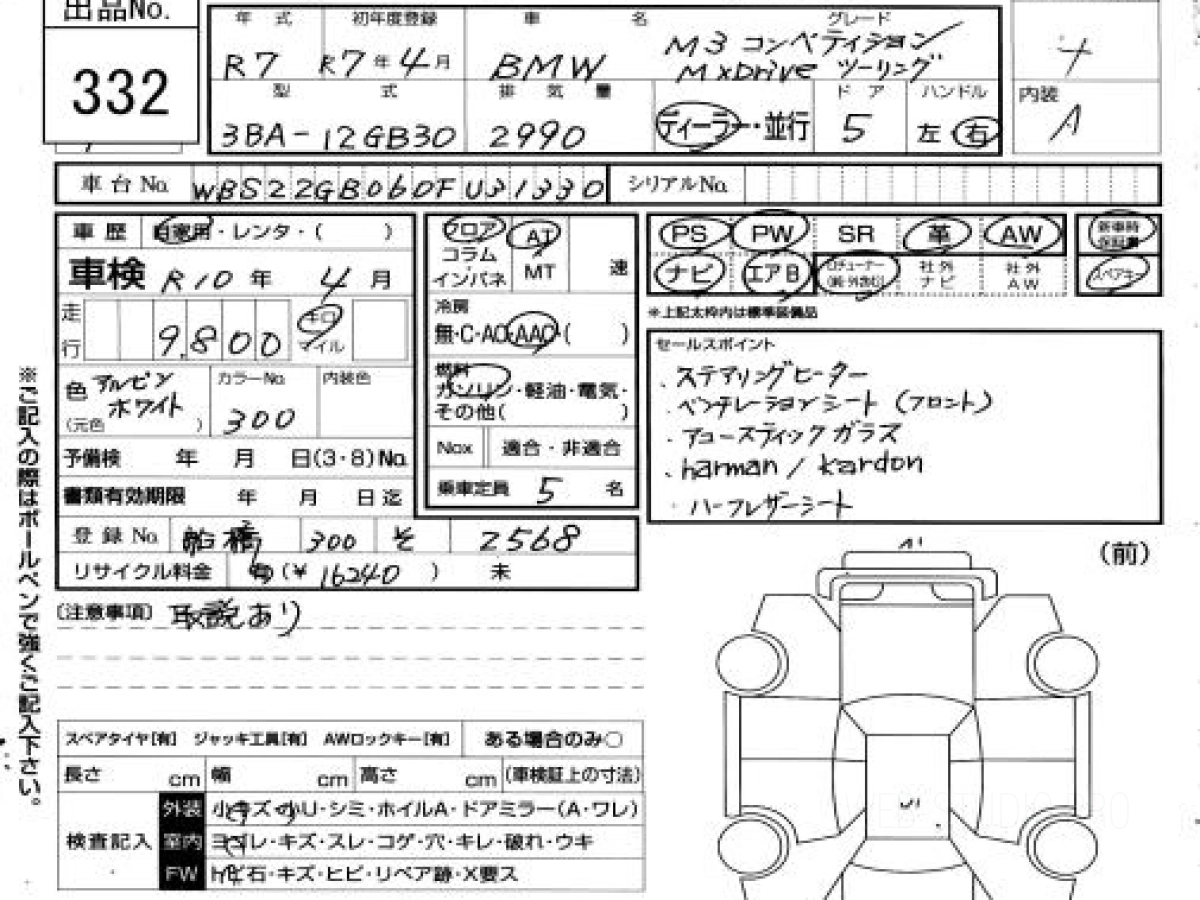 出品No.
332
年式 初年度登録 車名 グレード
R7 R7年4月 BMW M3 コンペティション
MxDrive ツーリング
型式 排気量 ドア ハンドル 内装
3BA-12GB30 2990 ディーラー・並行 5 左 右 A
車台No. WBS22GB060FU31330 シリアルNo.
車歴 自家用・レンタ・( )
車検 R10年 4月
走行 9,800 キロ マイル
色 アルピンホワイト (元色 )
カラーNo. 300 内装色
予備検 年 月 日(3・8)No.
書類有効期限 年 月 日迄
登録No. 船橋 300 そ 2568
リサイクル料金 (¥ 16240 ) 未
フロア コラム インパネ
AT MT 速
冷房
無・C・AC・AAC・( )
燃料
ガソリン・軽油・電気・
その他( )
Nox 適合・非適合
乗車定員 5 名
PS PW SR 革 AW 新車時保証書
ナビ エアB 社外ナビ 社外AW スペアキー
※上記太枠内は標準装備品
セールスポイント
・ステアリングヒーター
・ベンチレーションシート(フロント)
・アコースティックガラス
・harman / kardon
・ハーフレザーシート
(注意事項) 取説あり
※ご記入の際はボールペンで強くご記入下さい。
スペアタイヤ[有] ジャッキ工具[有] AWロックキー[有] ある場合のみ○
長さ cm 幅 cm 高さ cm (車検証上の寸法)
検査記入
外装 小キズ・小U・シミ・ホイルA・ドアミラー(A・ワレ)
室内 ヨゴレ・キズ・スレ・コゲ・穴・キレ・破れ・ウキ
FW トビ石・キズ・ヒビ・リペア跡・X要ス
A1
(前)